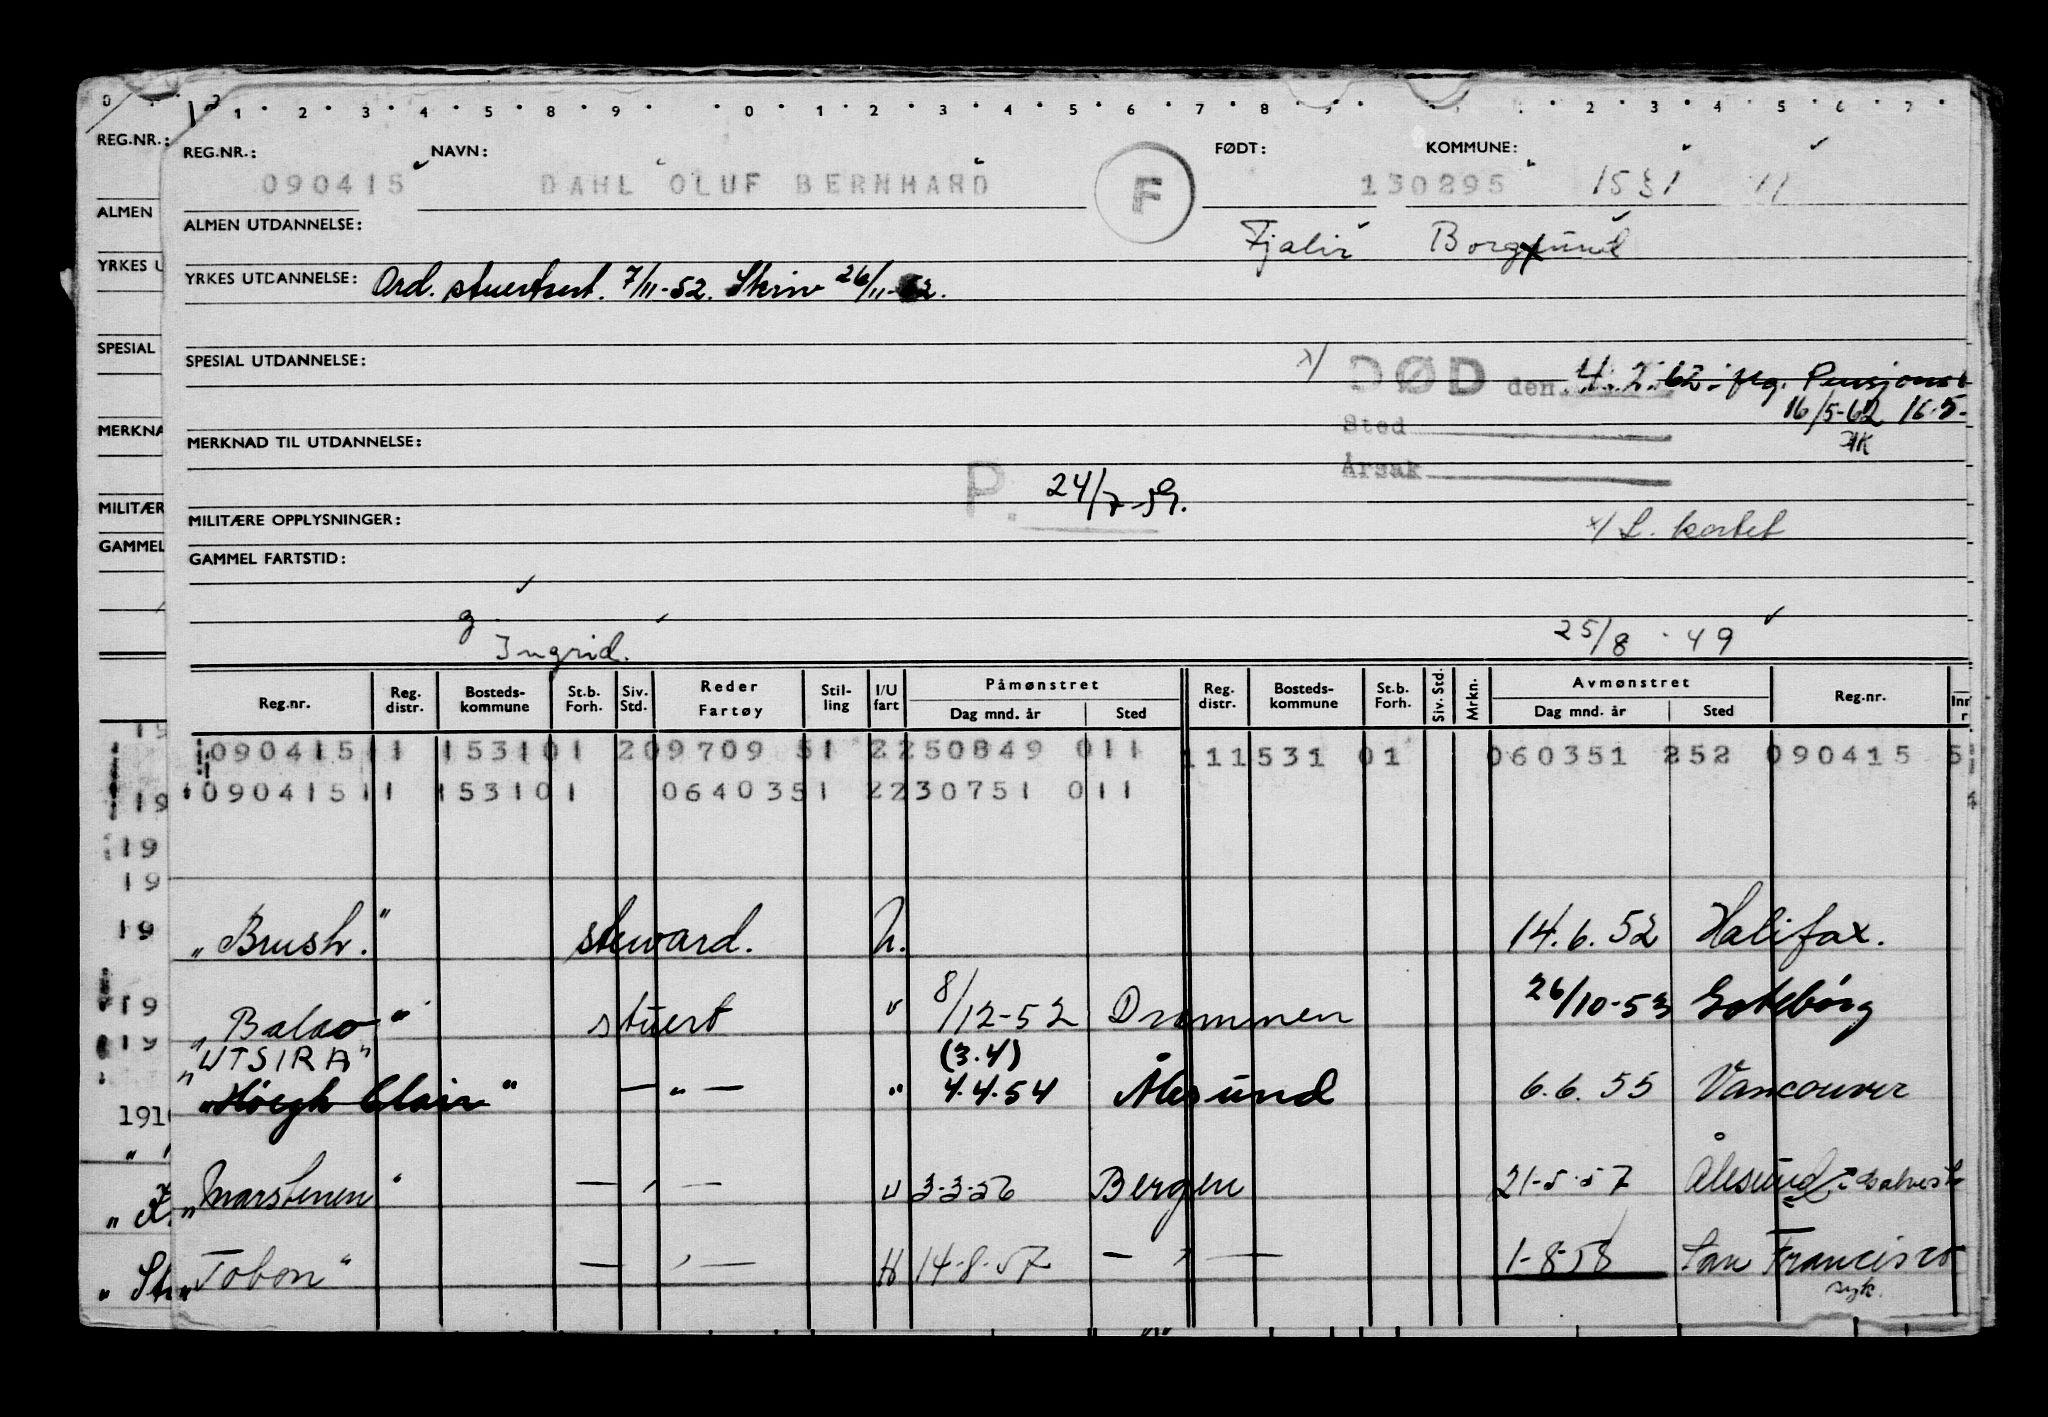 0 1 2 3 4 5 8 9 0 1 2 3 4 5 6 7 8 9 2 3 4 5 6 7
REG.NR.: REG.NR.: NAVN: FØDT: KOMMUNE:
090415 DAHL OLUF BERNHARD F 130295 1531 11
ALMEN ALMEN UTDANNELSE: Fjalir Borgund
YRKES U YRKES UTDANNELSE: Ord. stuertsert. 7/11-52. Skriv 26/11-52.
SPESIAL SPESIAL UTDANNELSE: x/ DØD den 4.2.62. flg. Pensjonst
16/5-62 16.5-
Sted
MERKNA MERKNAD TIL UTDANNELSE: AK
Årsak
P. 24/7-59.
MILITÆR MILITÆRE OPPLYSNINGER: x/ L. kortet
GAMMEL GAMMEL FARTSTID:
g.
Ingrid. 25/8-49
Reg.nr. Reg. distr. Bosteds- kommune St.b. Forh. Siv. Std. Reder Fartøy Stil- ling I/U fart Påmønstret Dag mnd. år Sted Reg. distr. Bosteds- kommune St.b. Forh. Siv. Std. Mrkn. Avmønstret Dag mnd. år Sted Reg.nr. Inr r
19 090415 11 153101 209709 51 2250849 011 111531 01 060351 252 090415 5
19 090415 11 153101 0640351 2230751 011
19
19
19 "Brush." steward. U. 14.6.52 Halifax.
19 "Balao" stuert " 8/12-52 Drammen 26/10-53 Gøteborg
19 "UTSIRA" (3.4)
191 "Høegh Clair" — " — " 4.4.54 Ålesund 6.6.55 Vancouver
"Marstenen" — " — U 3-3-56 Bergen 21-5-57 Ålesund
"St "Tobon" — " — U 14-8-57 — " — 1-8-58 San Francisco
syk.